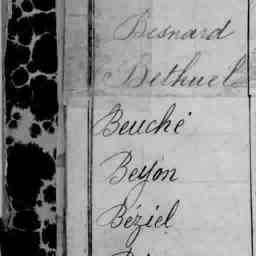 Besnard
Bethuel
Beuché
Beyon
Béziel